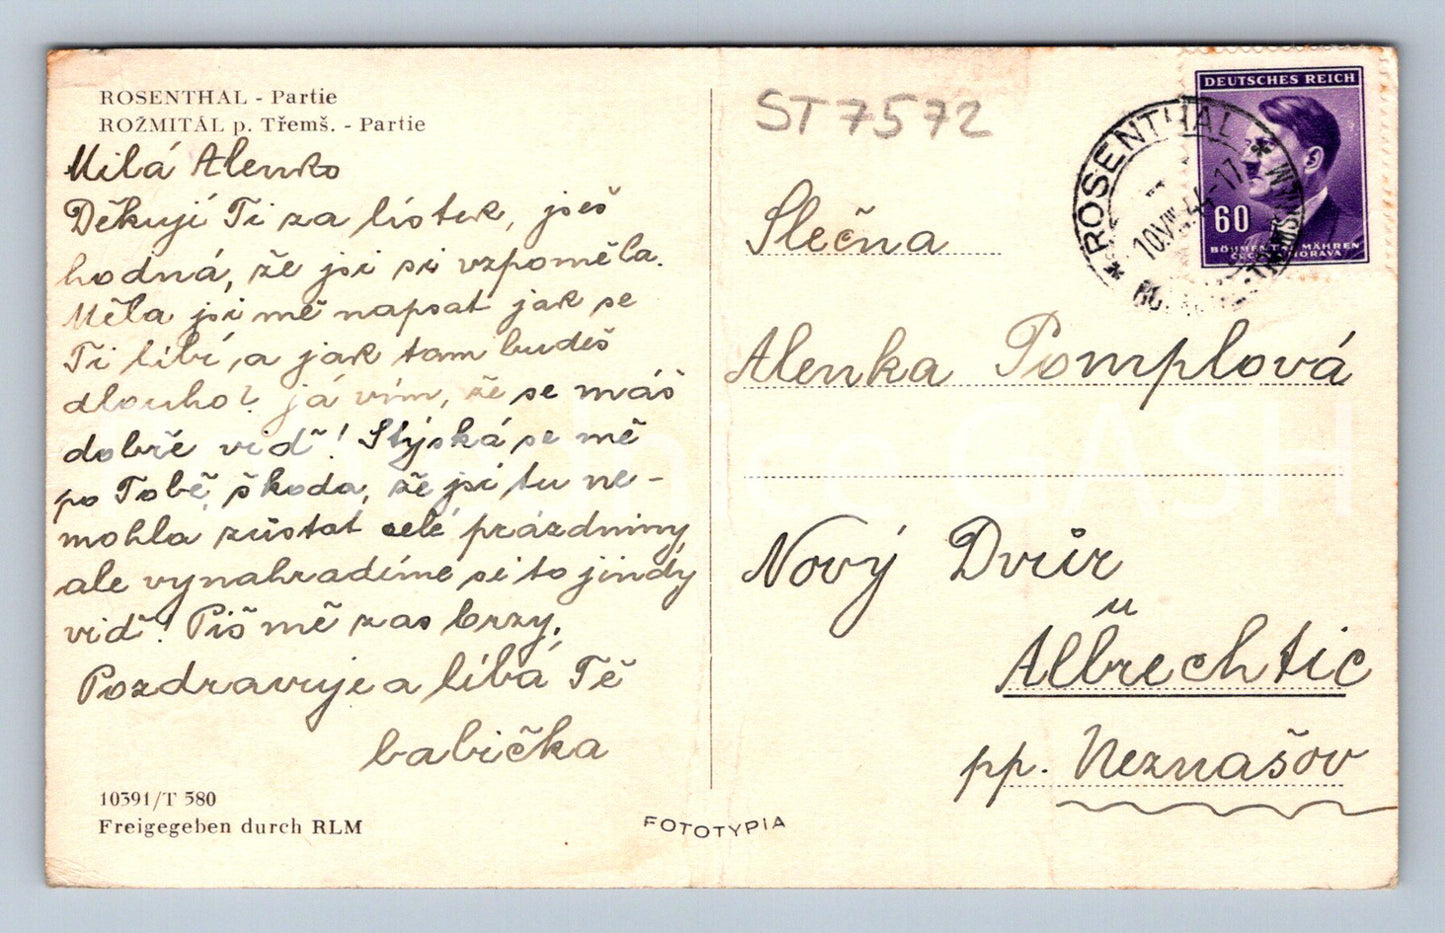 ROSENTHAL - Partie
ROŽMITÁL p. Třemš. - Partie
Milá Alenko
Děkuji Ti za lístek, jseš
hodná, že jsi si vzpoměla.
Měla jsi mě napsat jak se
Ti líbí, a jak tam budeš
dlouho? já vím, že se máš
dobře viď! Stýská se mě
po Tobě, škoda, že jsi tu ne-
mohla zůstat celé prázdniny
ale vynahradíme si to jindy
viď! Piš mě zas brzy,
Pozdravuje a líbá Tě
babička
10391/T 380
Freigegeben durch RLM
FOTOTYPIA
ST7572
DEUTSCHES REICH
60
BÖHMEN MÄHREN
MORAVA
ROSENTHAL
10.VIII.44-17
Slečna
Alenka Pomplová
Nový Dvůr
u
Albrechtic
pp. Neznašov